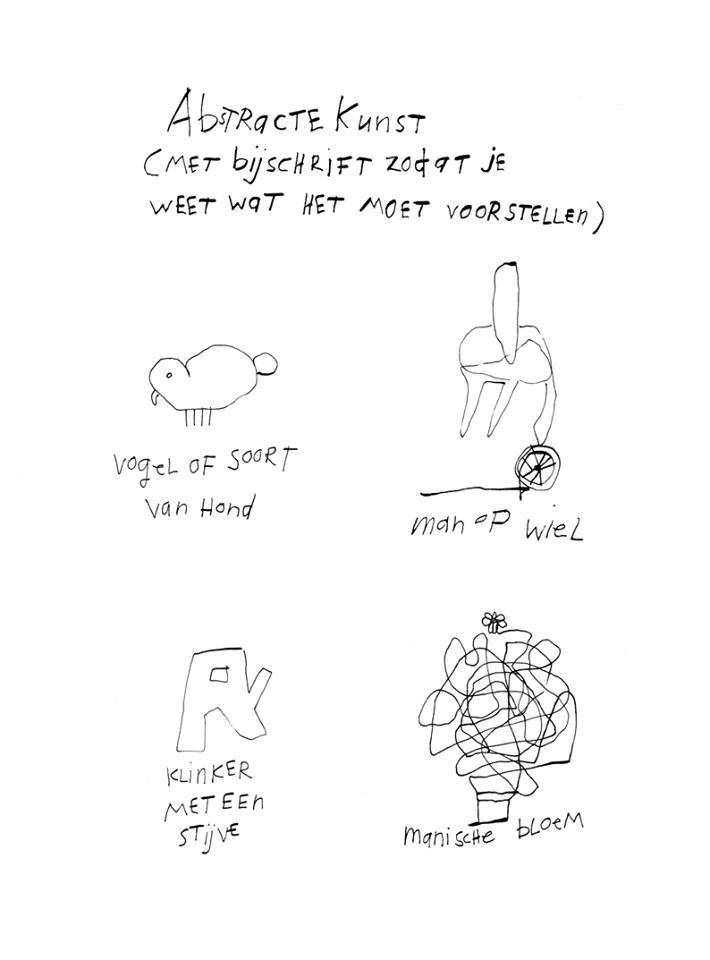 Abstracte Kunst
(met bijschrift zodat je
weet wat het moet voorstellen)
vogel of soort
van hond
man op wiel
klinker
met een
stijve
manische bloem